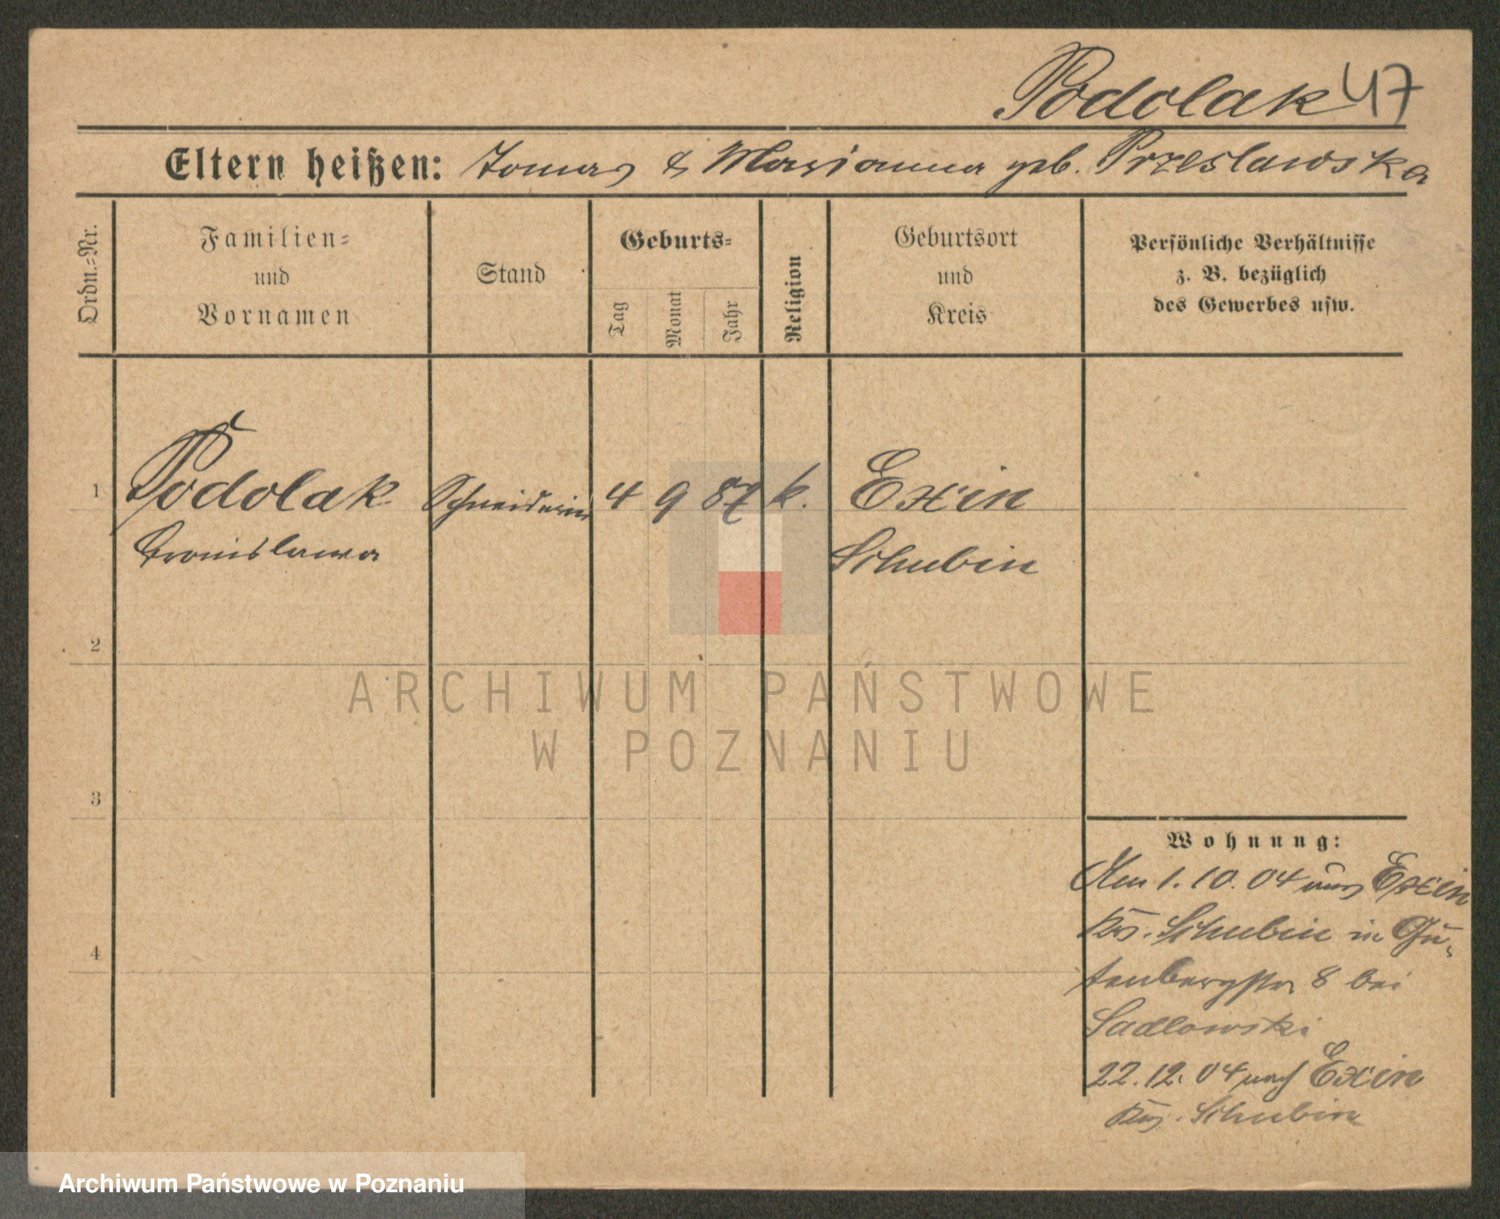 Podolak 47
Eltern heißen: Tomas & Marianna geb. Przeslawska
Ordn.-Nr.
Familien-
und
Vornamen
Stand
Geburts-
Tag
Monat
Jahr
Religion
Geburtsort
und
Kreis
Persönliche Verhältnisse
z. B. bezüglich
des Gewerbes usw.
1 Podolak Schneiderin 4 9 87 k. Exin
Bronislawa Schubin
2
3
4
Wohnung:
Am 1.10.04 aus Exin
Krs. Schubin in Gu-
tenbergstr. 8 bei
Sadlowski
22.12.04 nach Exin
Krs. Schubin
ARCHIWUM PAŃSTWOWE
W POZNANIU
Archiwum Państwowe w Poznaniu